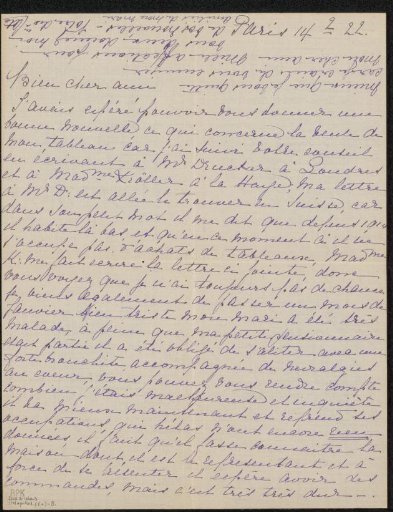 Paris 14 2/22.
Bien cher ami
J'avais espéré pouvoir vous donner une
bonne nouvelle ce qui concerne la vente de
mon tableau car j'ai suivi votre conseil
en écrivant à Mr Drucker à Londres
et à Madme Kröller à la Haye, ma lettre
à Mr D. est allée le trouver en Suisse, car
dans son petit mot il me dit que depuis 1914
il habite là bas et qu'en ce moment ci il ne
s'occupe plus d'achats de tableaux, Madme
K. me fait écrire la lettre ci jointe, donc
vous voyez que je n'ai toujours pas de chance
je viens également de passer un mois de
Janvier bien triste mon mari a été très
malade, à peine que ma petite pensionnaire
était partie il a été obligé de s'aliter avec une
forte bronchite accompagnée de névralgies
au coeur, vous pouvez vous rendre compte
combien j'étais malheureuse et inquiète
il va mieux maintenant et reprend ses
occupations, qui hélas n'ont encore rien
données, il faut qu'il fasse connaître la
maison dont il est le représentant et à
force de se présenter il espère avoir des
commandes, mais c'est très très dur —